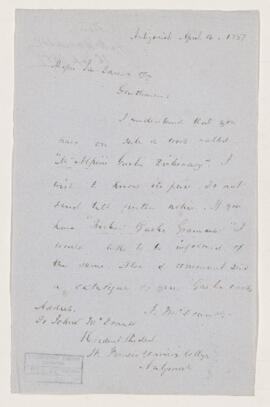 Antigonish April 14, 1857
Gentlemen,
I understand that you
have on sale a work called
"McAlpine's Gaelic Dictionary" I
wish to know its price. Do not
send till further notice. If you
have "Gaelic Grammar" I
would like to be informed of
the same. Also I send
a catalogue of your Gaelic books
Address, J. McDonald
To John McDonald
Resident Student
St. Francis Xavier's College
Antigonish